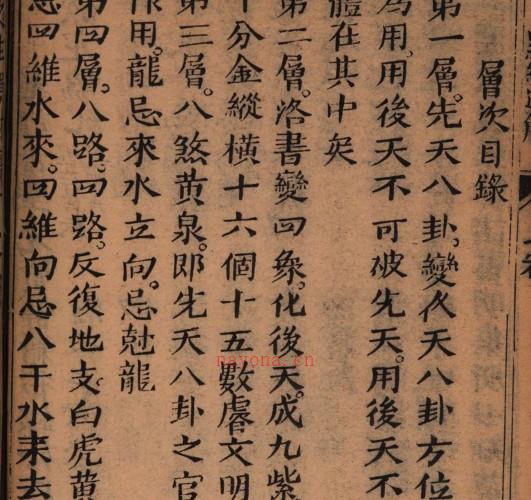 層次目錄
第一層。先天八卦。變後天八卦方位
為用。用後天不可破先天。用後天不
體在其中矣
第二層。洛書變四象。化後天。成九紫
十分金縱橫十六個十五數。睿文明
第三層。八煞黃泉。即先天八卦之官
作用。龍忌來水立向。忌尅龍
第四層。八路四路。反復地支。白虎黃
忌四維水來。四維向忌八干水来去
nayona.cn